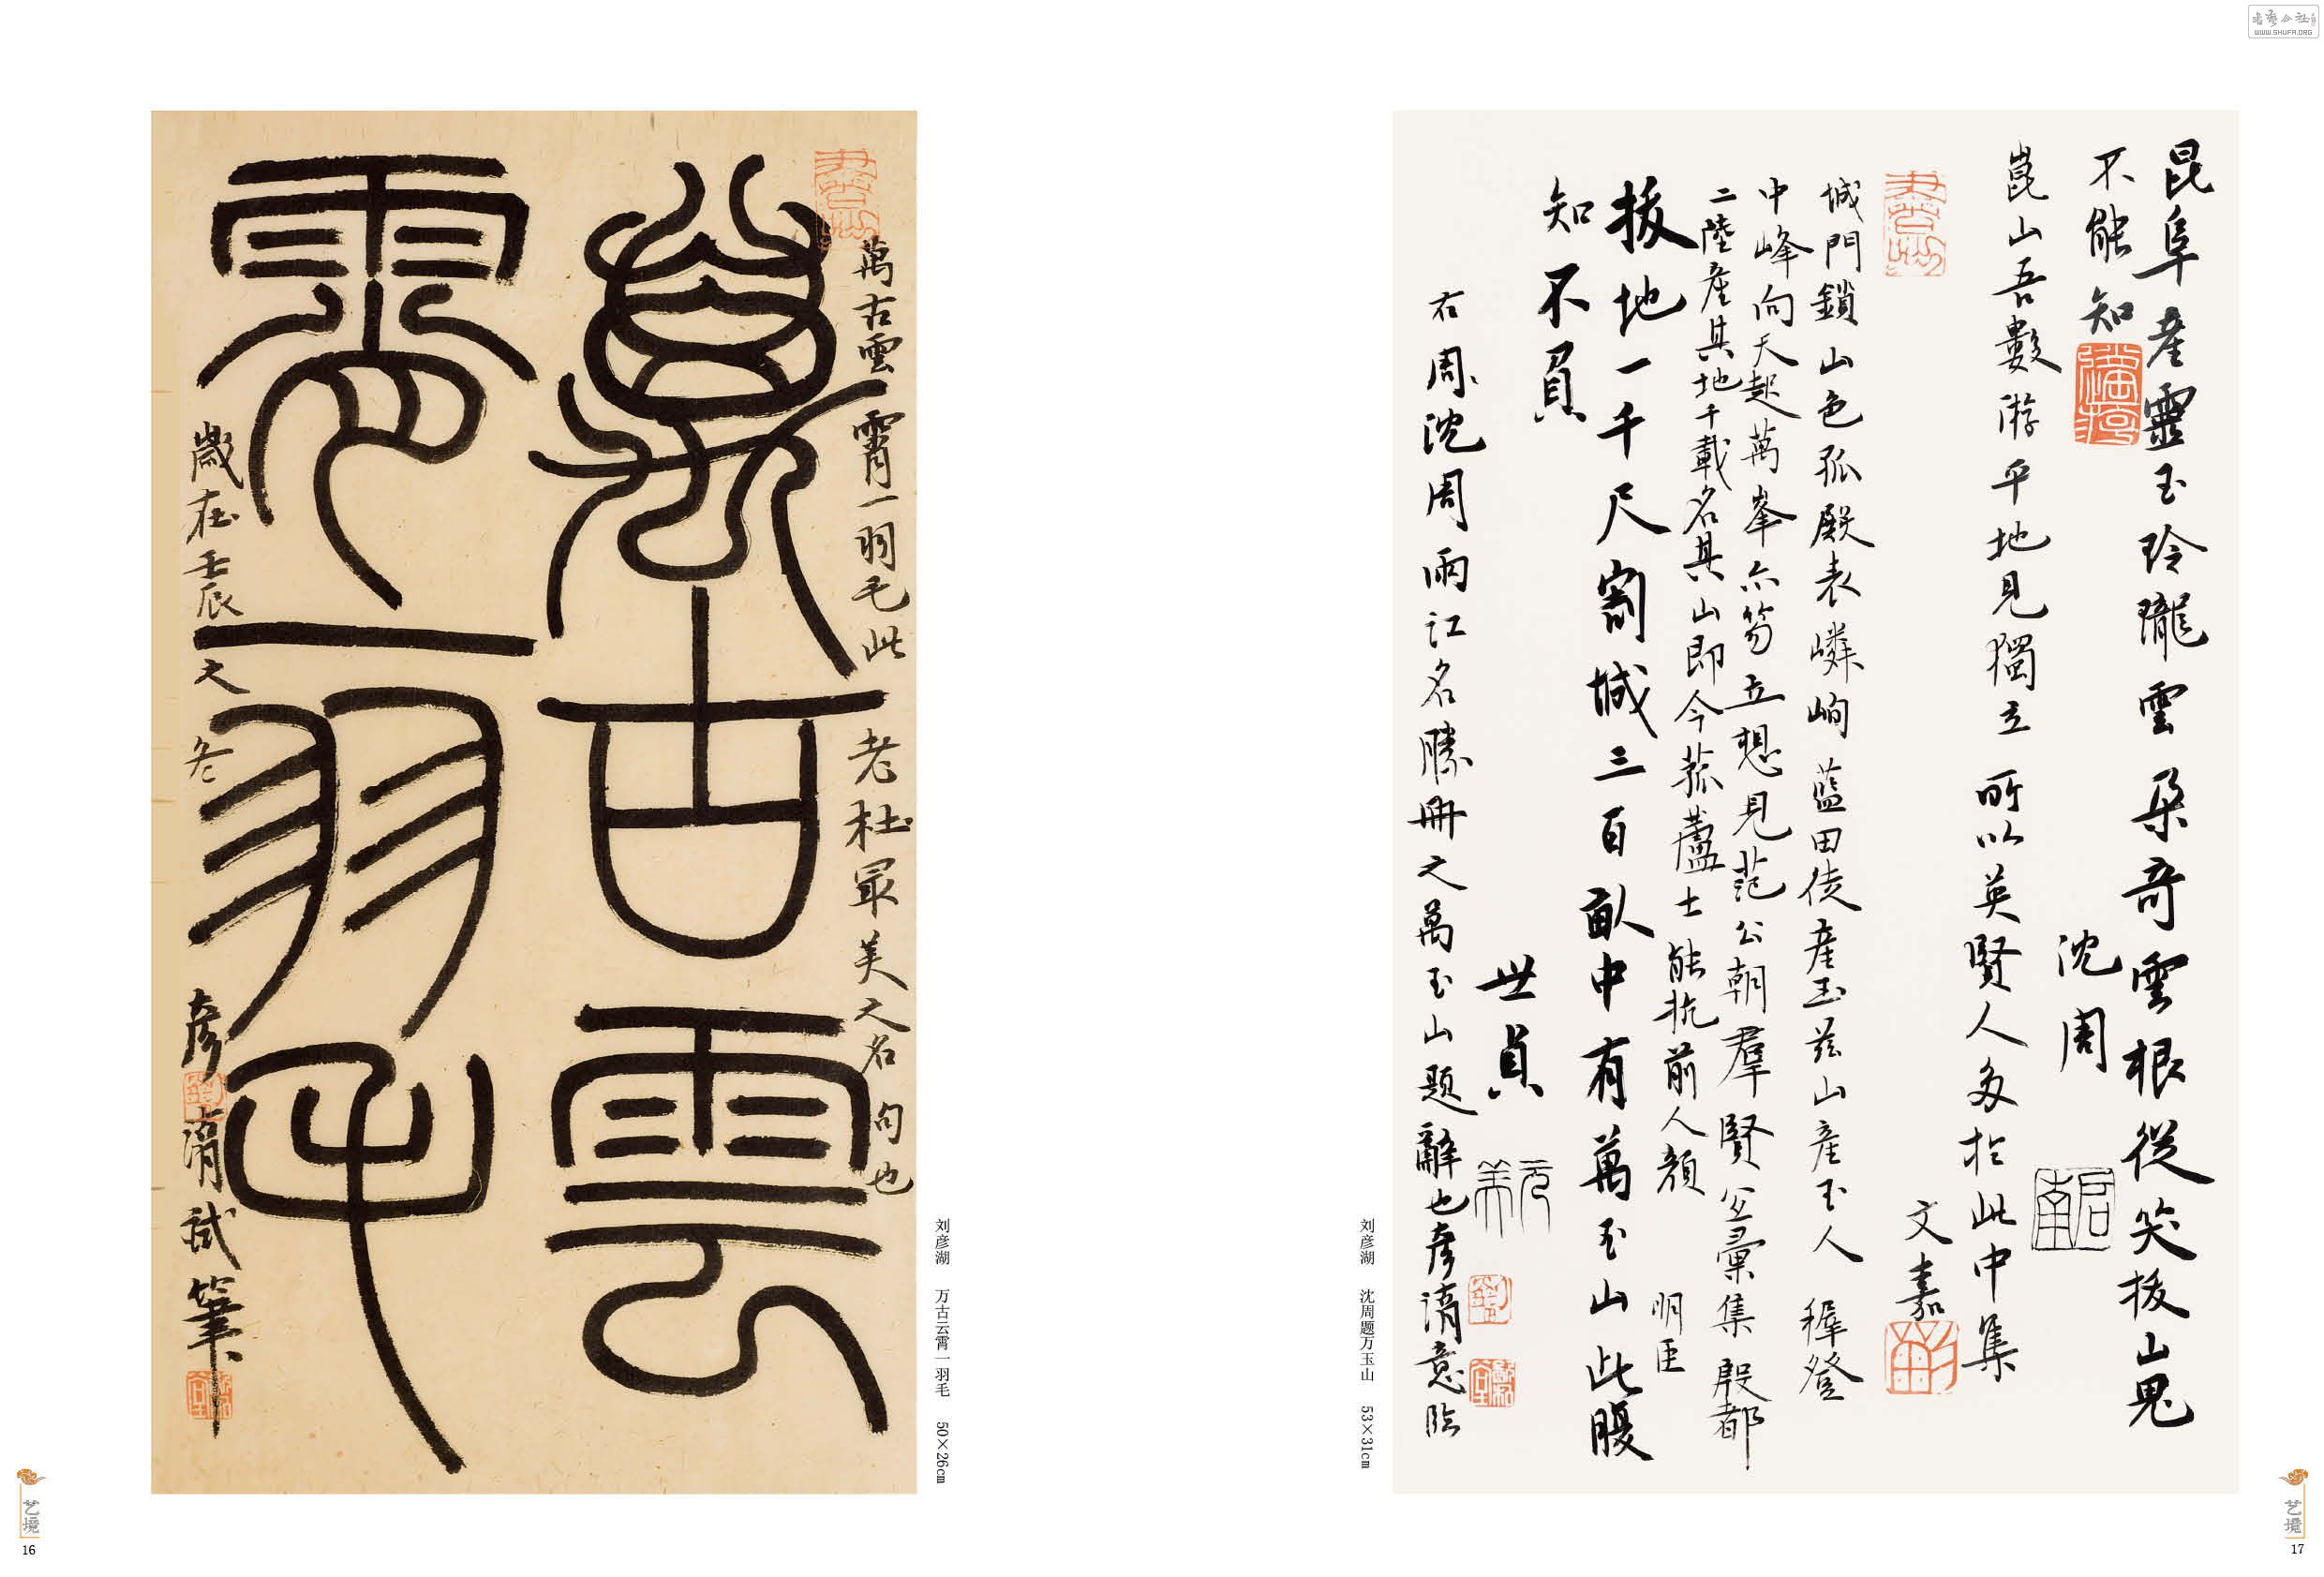 萬古雲
霄一羽毛
萬古雲霄一羽毛此老杜最美之名句也
歲在壬辰之冬彦湖試筆
刘彦湖 万古云霄一羽毛 50×26cm
艺境
16
昆阜產靈玉玲瓏雲朵奇雲根從笑拔山鬼
不能知
沈周
崑山吾數游平地見獨立所以英賢人多於此中集
文嘉
城門鎖山色孤殿表嶙峋藍田徒產玉兹山產玉人 穉登
中峰向天起萬峯亦笏立想見范公朝羣賢並彙集 殷都
二陸產其地千載名其山即今菰蘆士能抗前人顏 明臣
拔地一千尺割城三百畝中有萬玉山此腹
知不負
世貞
右周沈周兩江名勝冊之萬玉山題辭也彦湖意臨
刘彦湖 沈周题万玉山 53×31cm
艺境
17
WWW.SHUFA.ORG